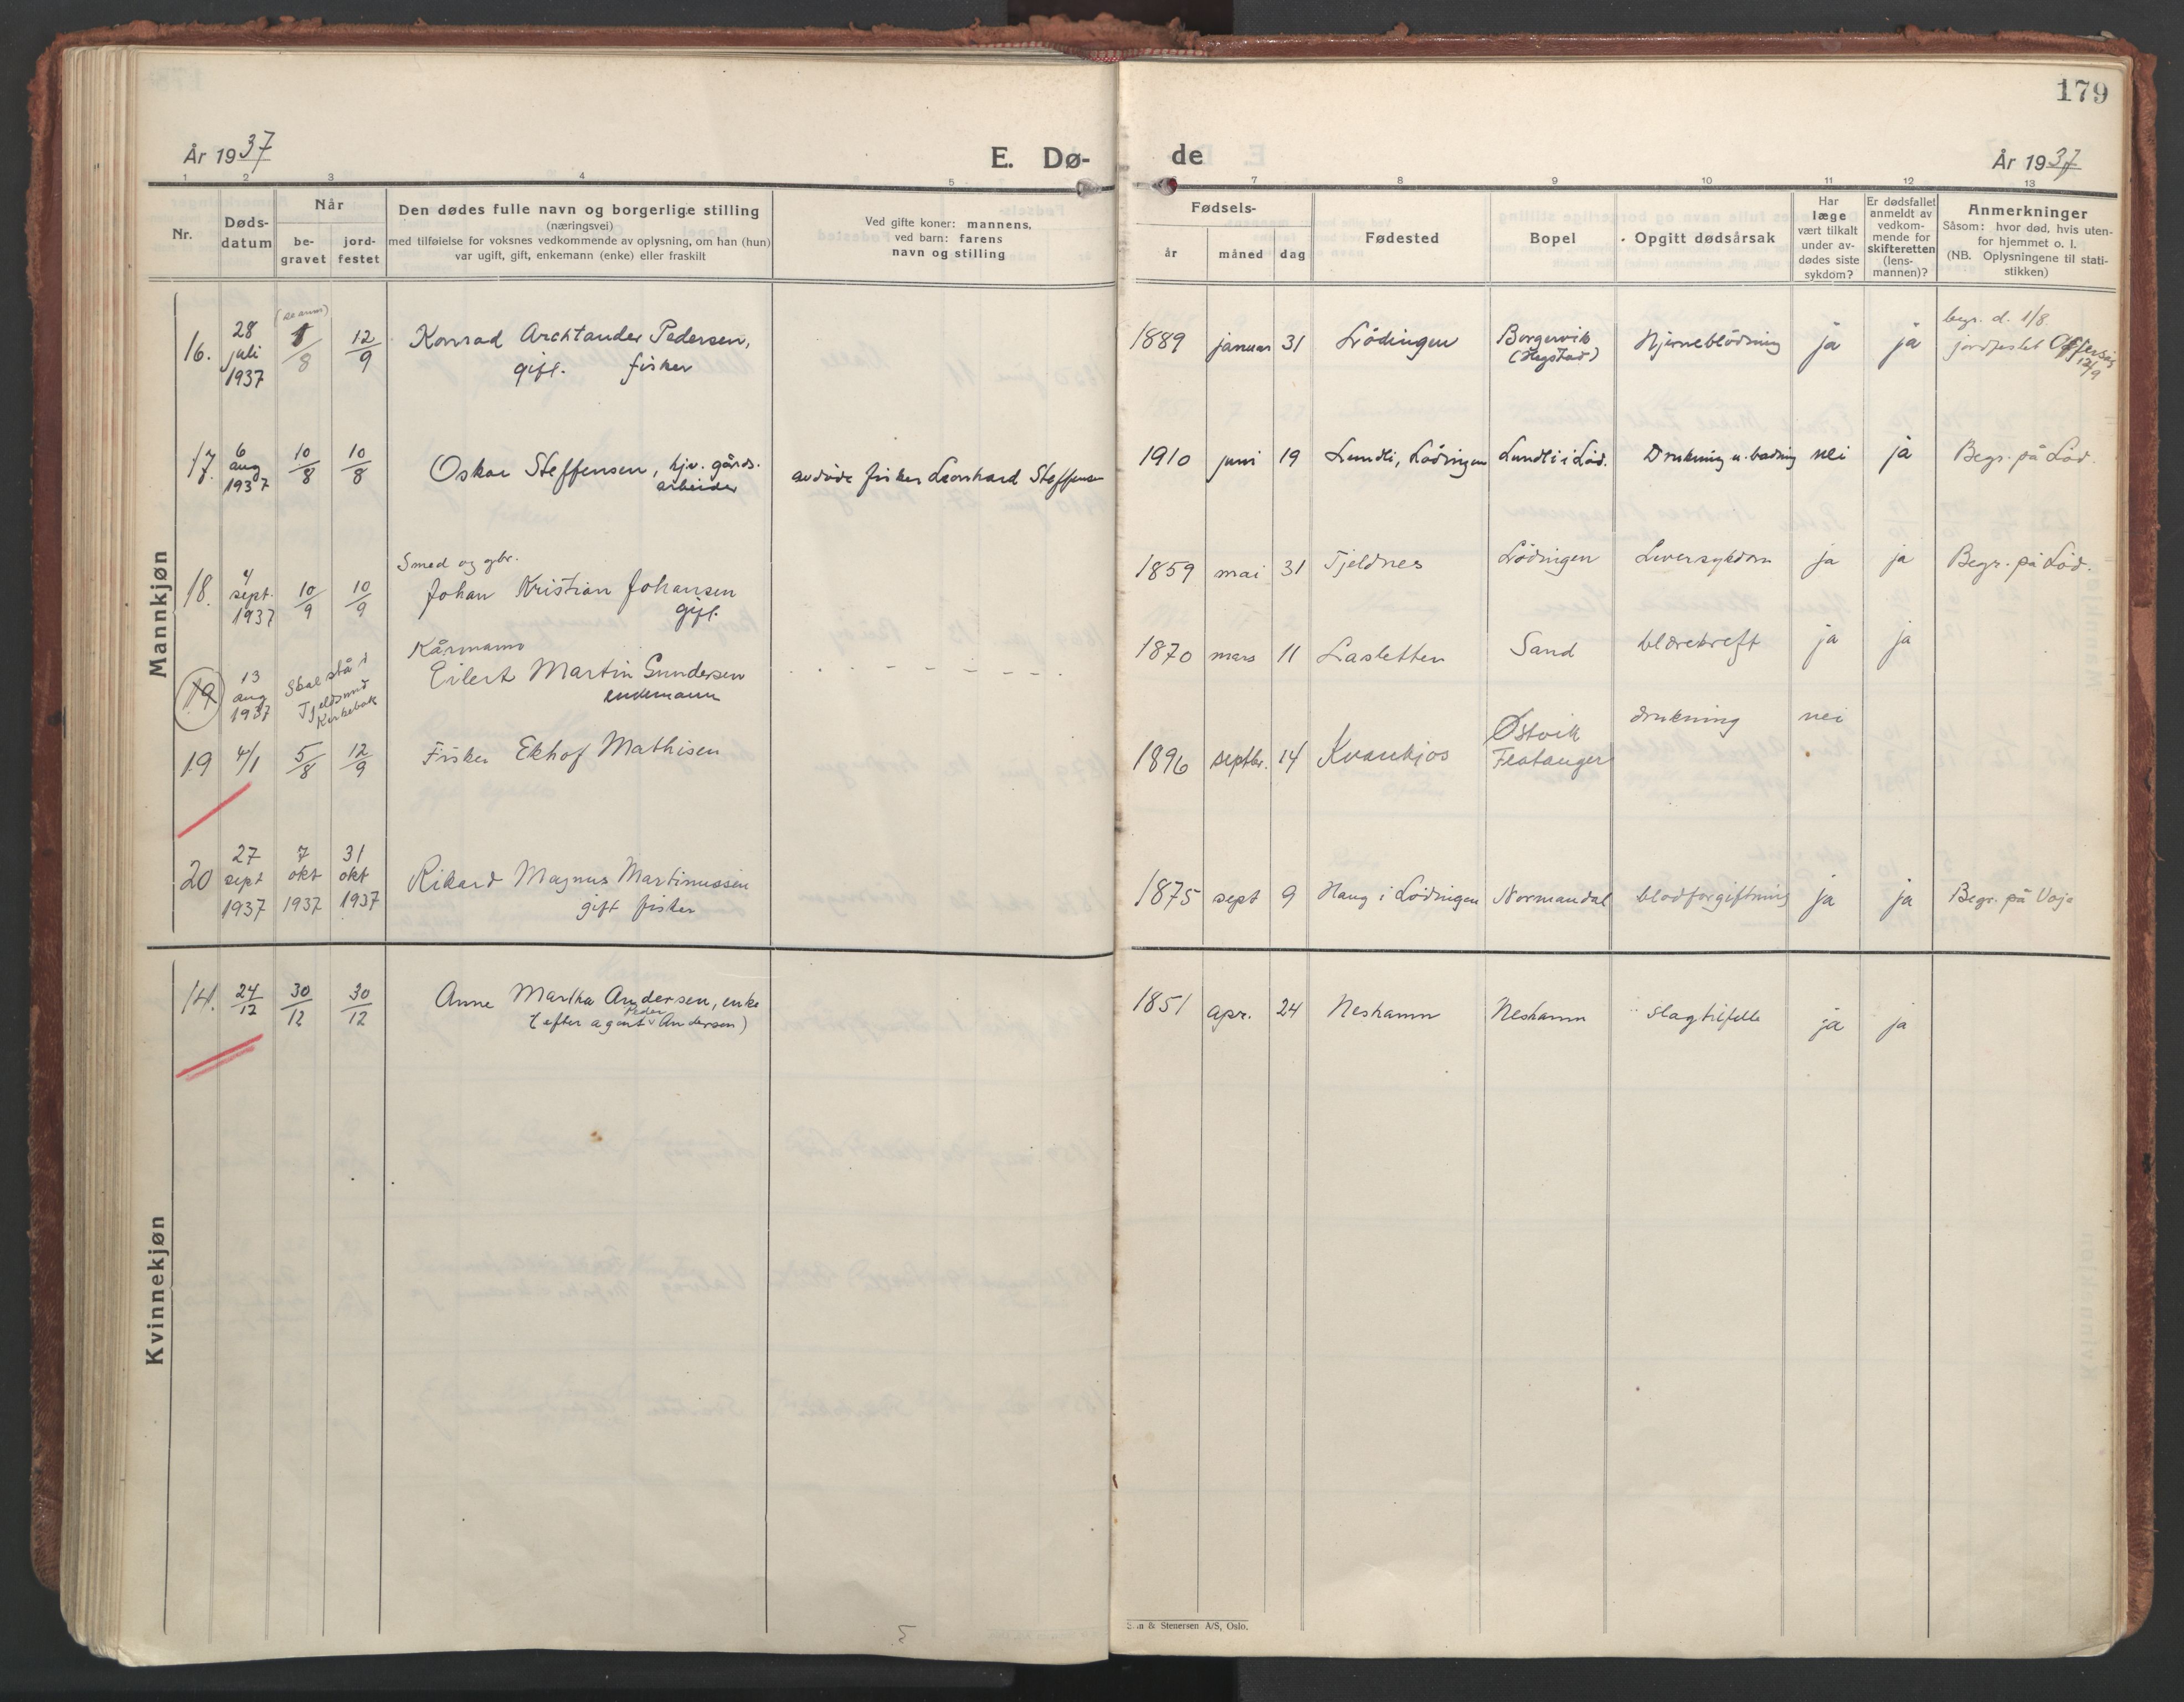 179
År 1937
E. Dø-
de
År 1937
1 2 3 4 5 7 8 9 10 11 12 13
Nr.
Døds-
datum
Når
be-
gravet
jord-
festet
Den dødes fulle navn og borgerlige stilling
(næringsvei)
med tilføielse for voksnes vedkommende av oplysning, om han (hun)
var ugift, gift, enkemann (enke) eller fraskilt
Ved gifte koner: mannens,
ved barn: farens
navn og stilling
Fødsels-
år
måned
dag
Fødested
Bopel
Opgitt dødsårsak
Har
læge
vært tilkalt
under av-
dødes siste
sykdom?
Er dødsfallet
anmeldt av
vedkom-
mende for
skifteretten
(lens-
mannen)?
Anmerkninger
Såsom: hvor død, hvis uten-
for hjemmet o. l.
(NB. Oplysningene til stati-
stikken)
Mannkjøn
16. 28 juli 1937 (se anm) 1/8 12/9 Konrad Archtander Pedersen,
gift. fisker
1889 januar 31 Lödingen Borgervik (Hegstad) Hjerneblödning ja ja begr. d. 1/8.
jordfestet Offersöy 12/9
17. 6 aug 1937 10/8 10/8 Oskar Steffensen, hjv. gårds-
arbeider
avdöde fisker Leonhard Steffensen
1910 juni 19 Lundli, Lödingen Lundli i Löd. Drukning u. bading nei ja Begr. på Löd.
18. 4 sept. 1937 10/9 10/9 Smed og gbr.
Johan Kristian Johansen
gift.
1859 mai 31 Tjeldnes Lödingen Leversykdom ja ja Begr. på Löd.
19 13 aug 1937 Skal stå i Tjeldsund Kirkebok Kårmann
Eilert Martin Gundersen
enkemann
1870 mars 11 Lasletten Sand blærekreft ja ja
19 4/1 5/8 12/9 Fisker Ekhof Mathisen
1896 septbr. 14 Kvankjos Østvik Flatanger drukning nei
20 27 sept 1937 7 okt 1937 31 okt 1937 Rikard Magnus Martinussen
gift fisker
1875 sept 9 Haug i Lödingen Normandal blodforgiftning ja ja Begr. på Voje
Kvinnekjøn
14. 24/12 30/12 30/12 Anne Martha Andersen, enke
(efter agent Peder Andersen)
1851 apr. 24 Neshamn Neshamn slagtilfelle ja ja
& Stenersen A/S, Oslo.